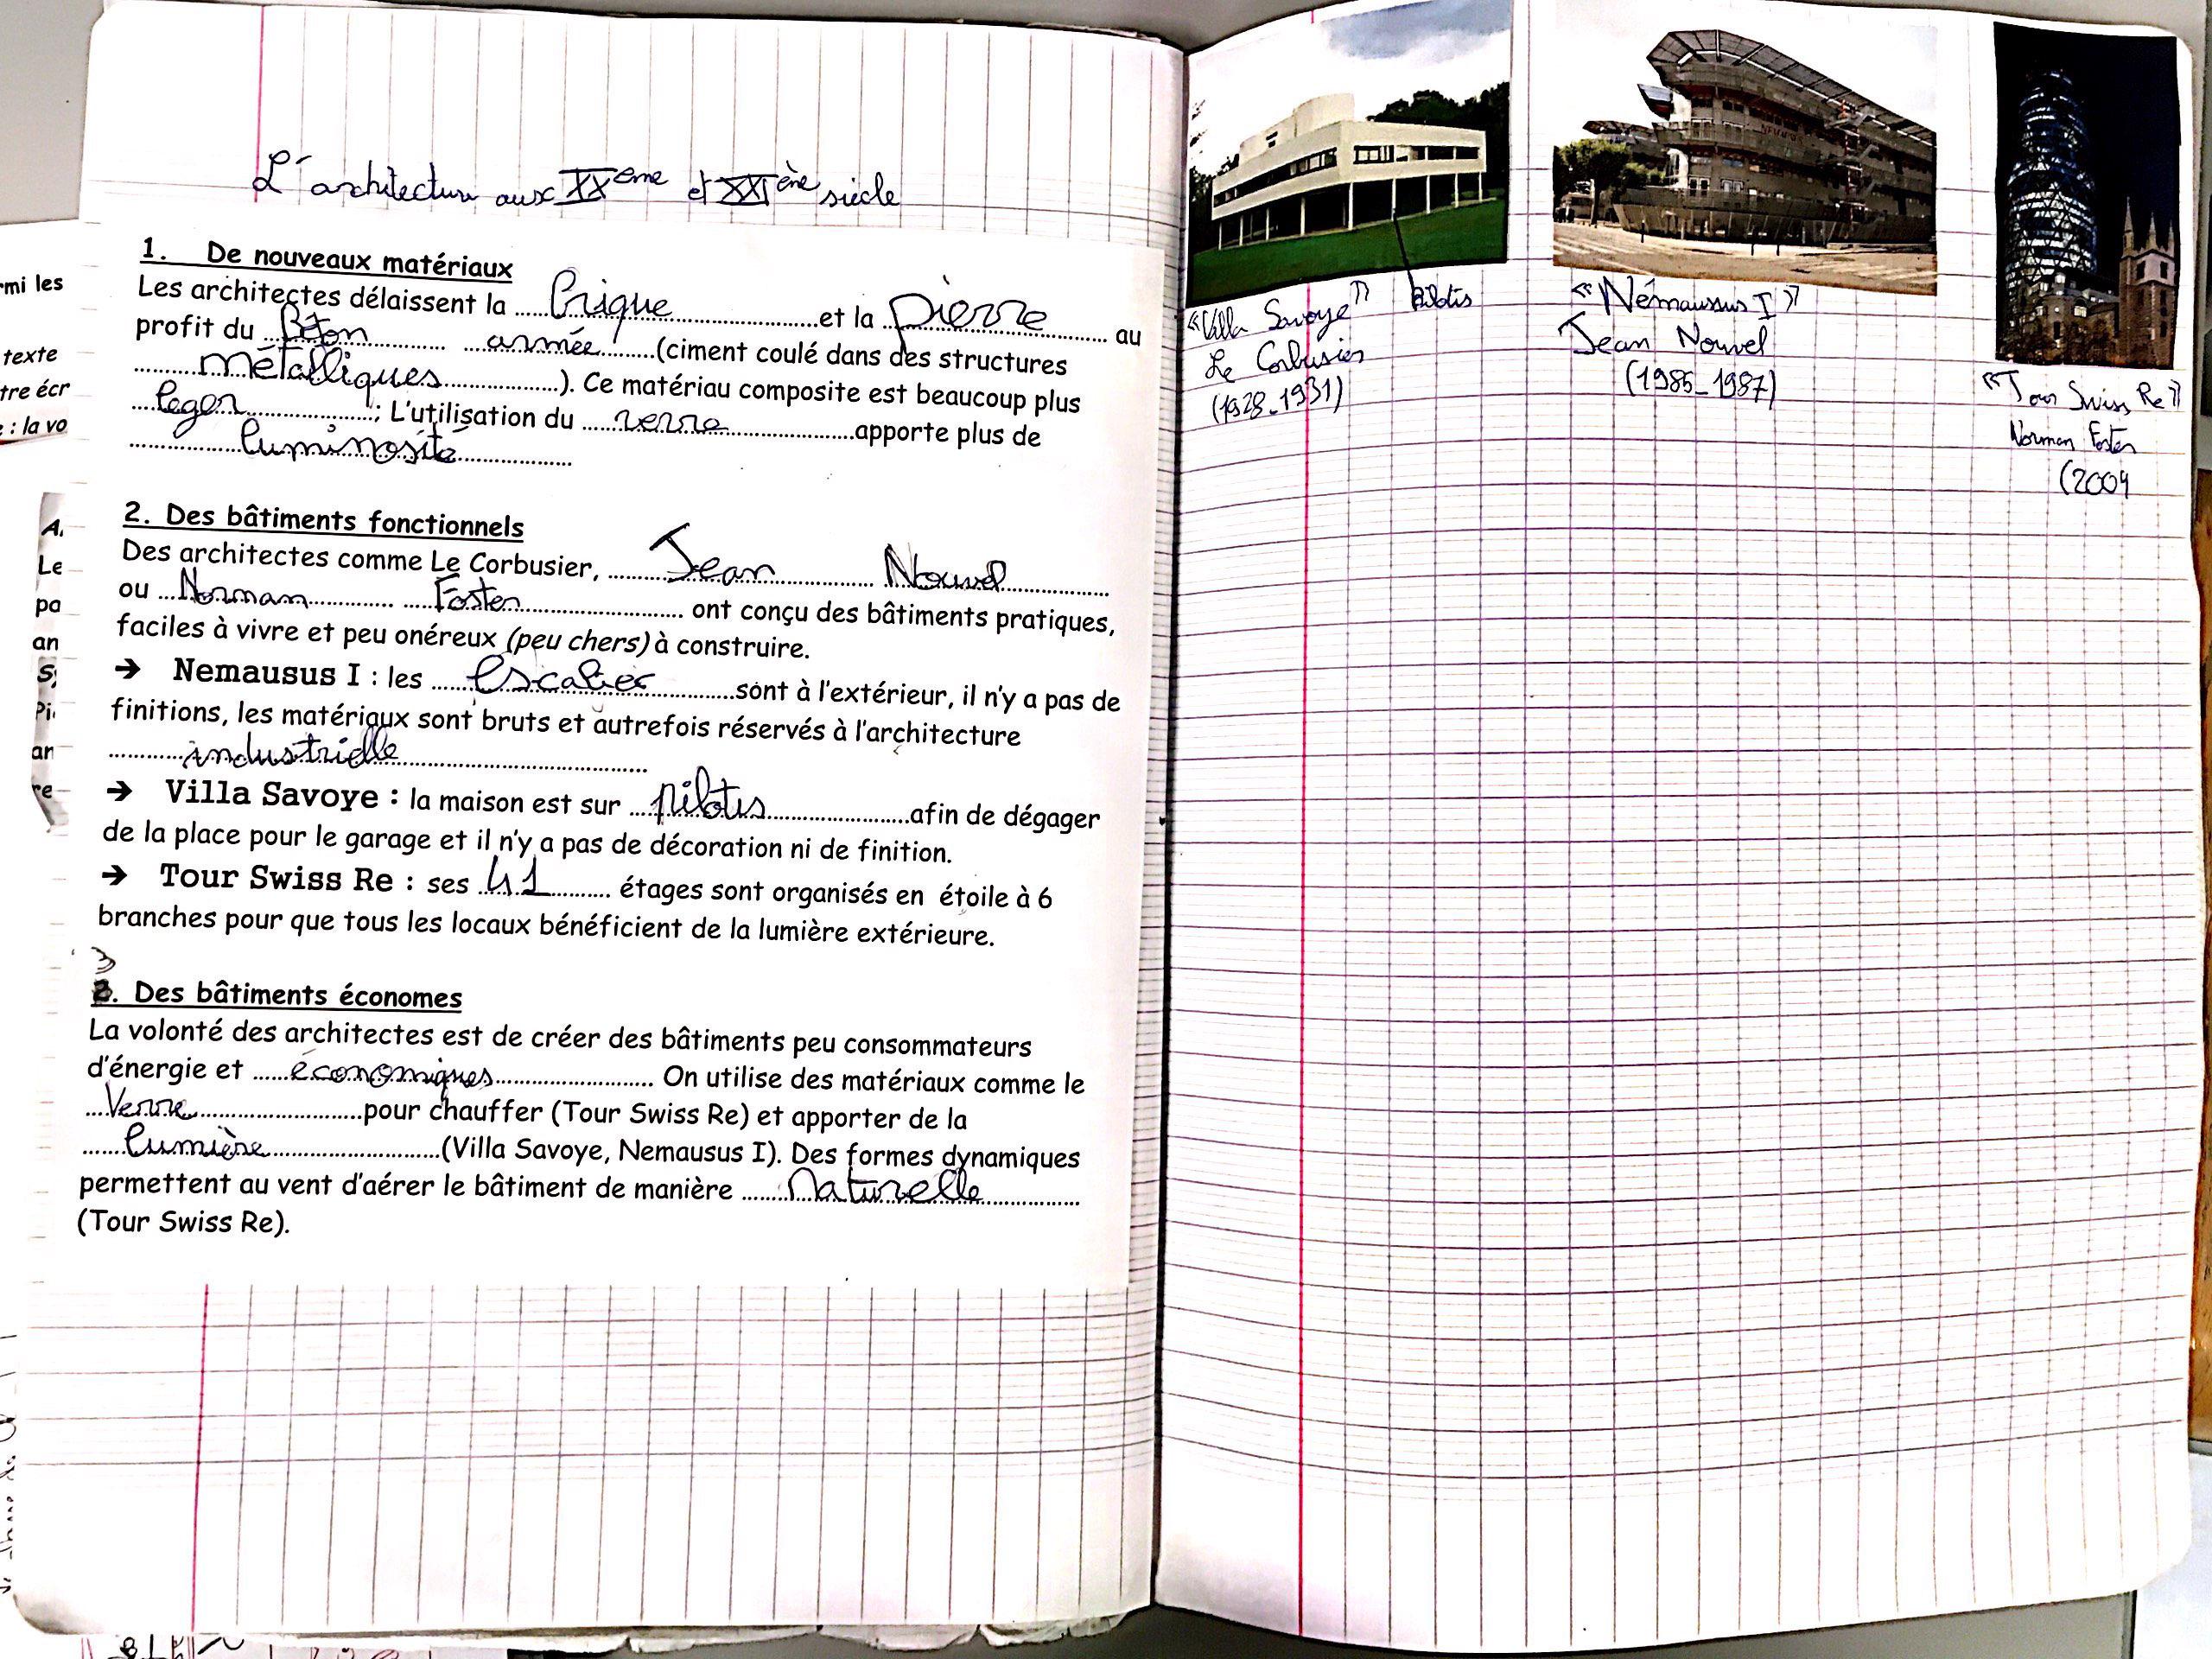 L'architecture aux XXème et XXIène siècle
1. De nouveaux matériaux
Les architectes délaissent la ......brique..................et la ..pierre........ au
profit du ..Béton............ ...armée.......(ciment coulé dans des structures
..........métalliques...............). Ce matériau composite est beaucoup plus
....leger................; L'utilisation du .....verre..................apporte plus de
...............luminosité................
2. Des bâtiments fonctionnels
Des architectes comme Le Corbusier, ..........Jean............ ..Nouvel............
ou ...Norman............ .....Foster...................... ont conçu des bâtiments pratiques,
faciles à vivre et peu onéreux (peu chers) à construire.
➔ Nemausus I : les ......escalier............sont à l'extérieur, il n'y a pas de
finitions, les matériaux sont bruts et autrefois réservés à l'architecture
...........industrielle...................................
➔ Villa Savoye : la maison est sur ....pilotis.....................afin de dégager
de la place pour le garage et il n'y a pas de décoration ni de finition.
➔ Tour Swiss Re : ses ..41.......... étages sont organisés en étoile à 6
branches pour que tous les locaux bénéficient de la lumière extérieure.
3
. Des bâtiments économes
La volonté des architectes est de créer des bâtiments peu consommateurs
d'énergie et .....économiques...................... On utilise des matériaux comme le
...Verre......................pour chauffer (Tour Swiss Re) et apporter de la
......lumière.......................(Villa Savoye, Nemausus I). Des formes dynamiques
permettent au vent d'aérer le bâtiment de manière .......Naturelle..............
(Tour Swiss Re).
rmi les
texte
tre écr
: la vo
A.
Le
pa
an
S
Pi
an
re
NEMAUSUS
«Villa Savoye»
Le Corbusier
(1928-1931)
pilotis
«Némausus I»
Jean Nouvel
(1985-1987)
«Tour Swiss Re»
Norman Foster
(2004